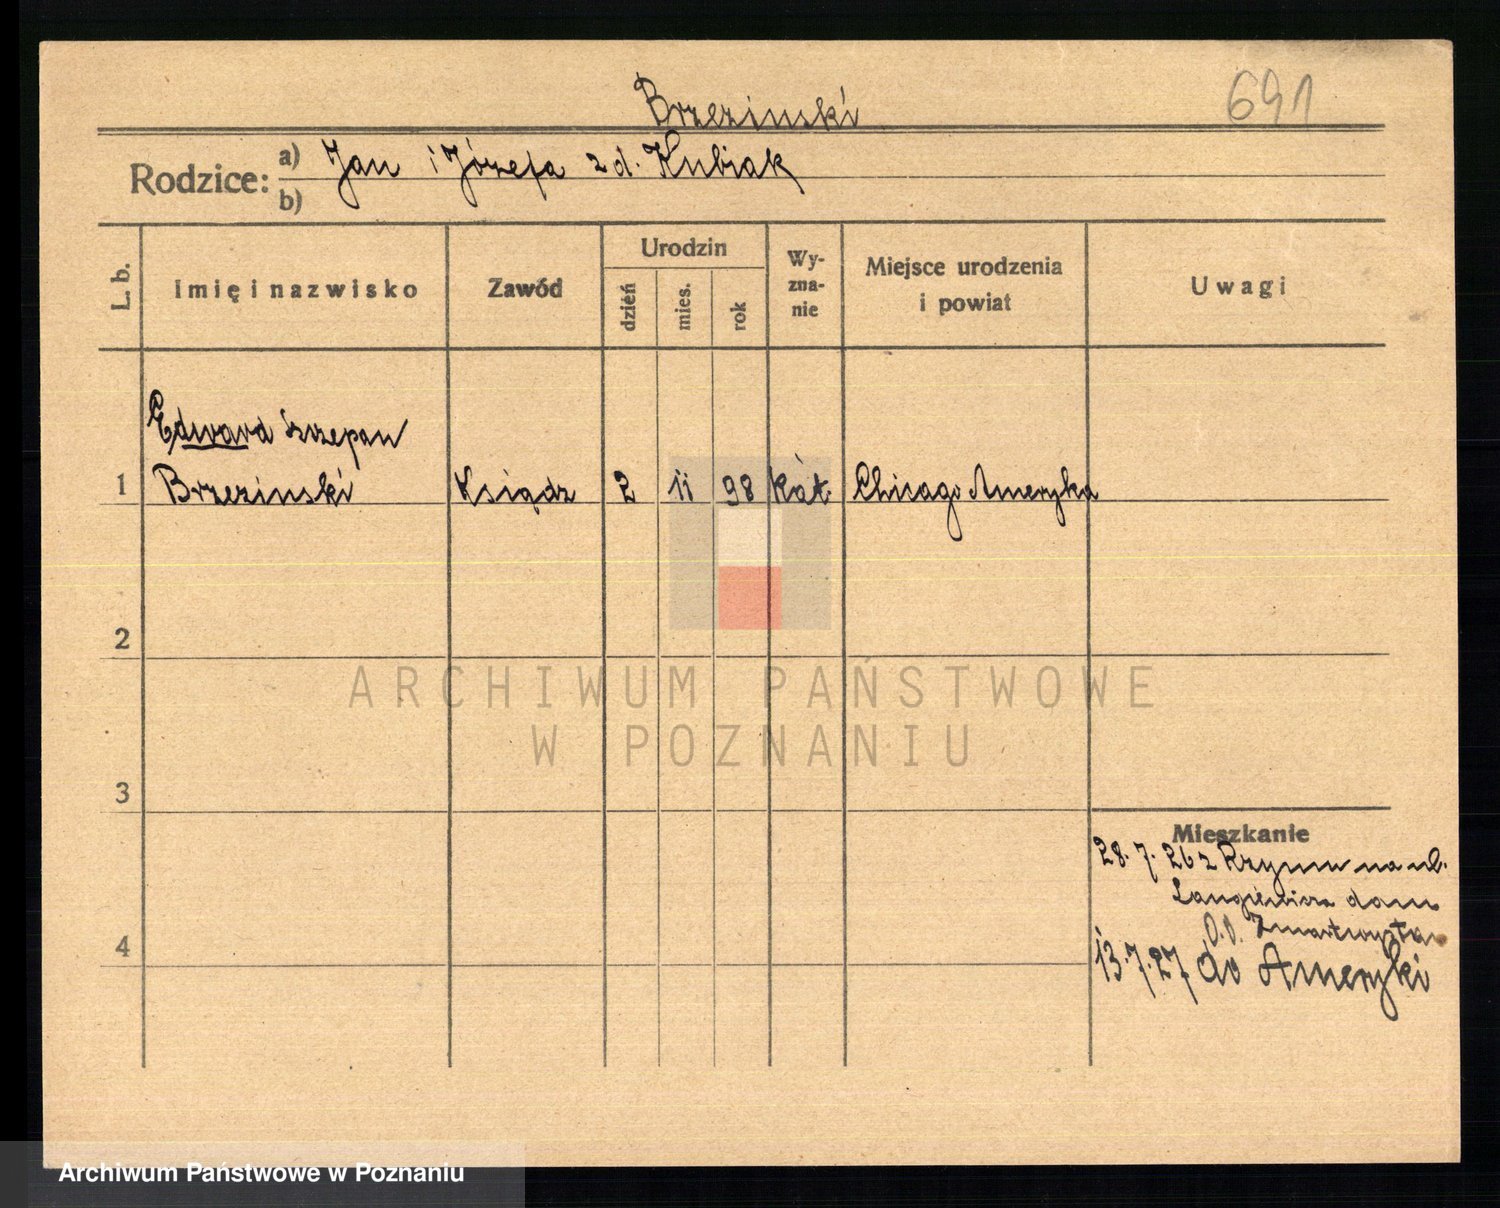 Brzezinski
691
Rodzice: a) Jan i Józefa z d. Kubiak
b)
L. b.
Imię i nazwisko
Zawód
Urodzin
dzień
mies.
rok
Wy-
zna-
nie
Miejsce urodzenia
i powiat
Uwagi
Edward Szczepan
1 Brzezinski Ksiądz 2 11 98 kat. Chicago Ameryka
2
ARCHIWUM PAŃSTWOWE
W POZNANIU
3
Mieszkanie
28. 7. 26 z Rzymu na ul.
Langiewicza dom
O.O. Zmartwychwst.
4
13. 7. 27 do Ameryki
Archiwum Państwowe w Poznaniu